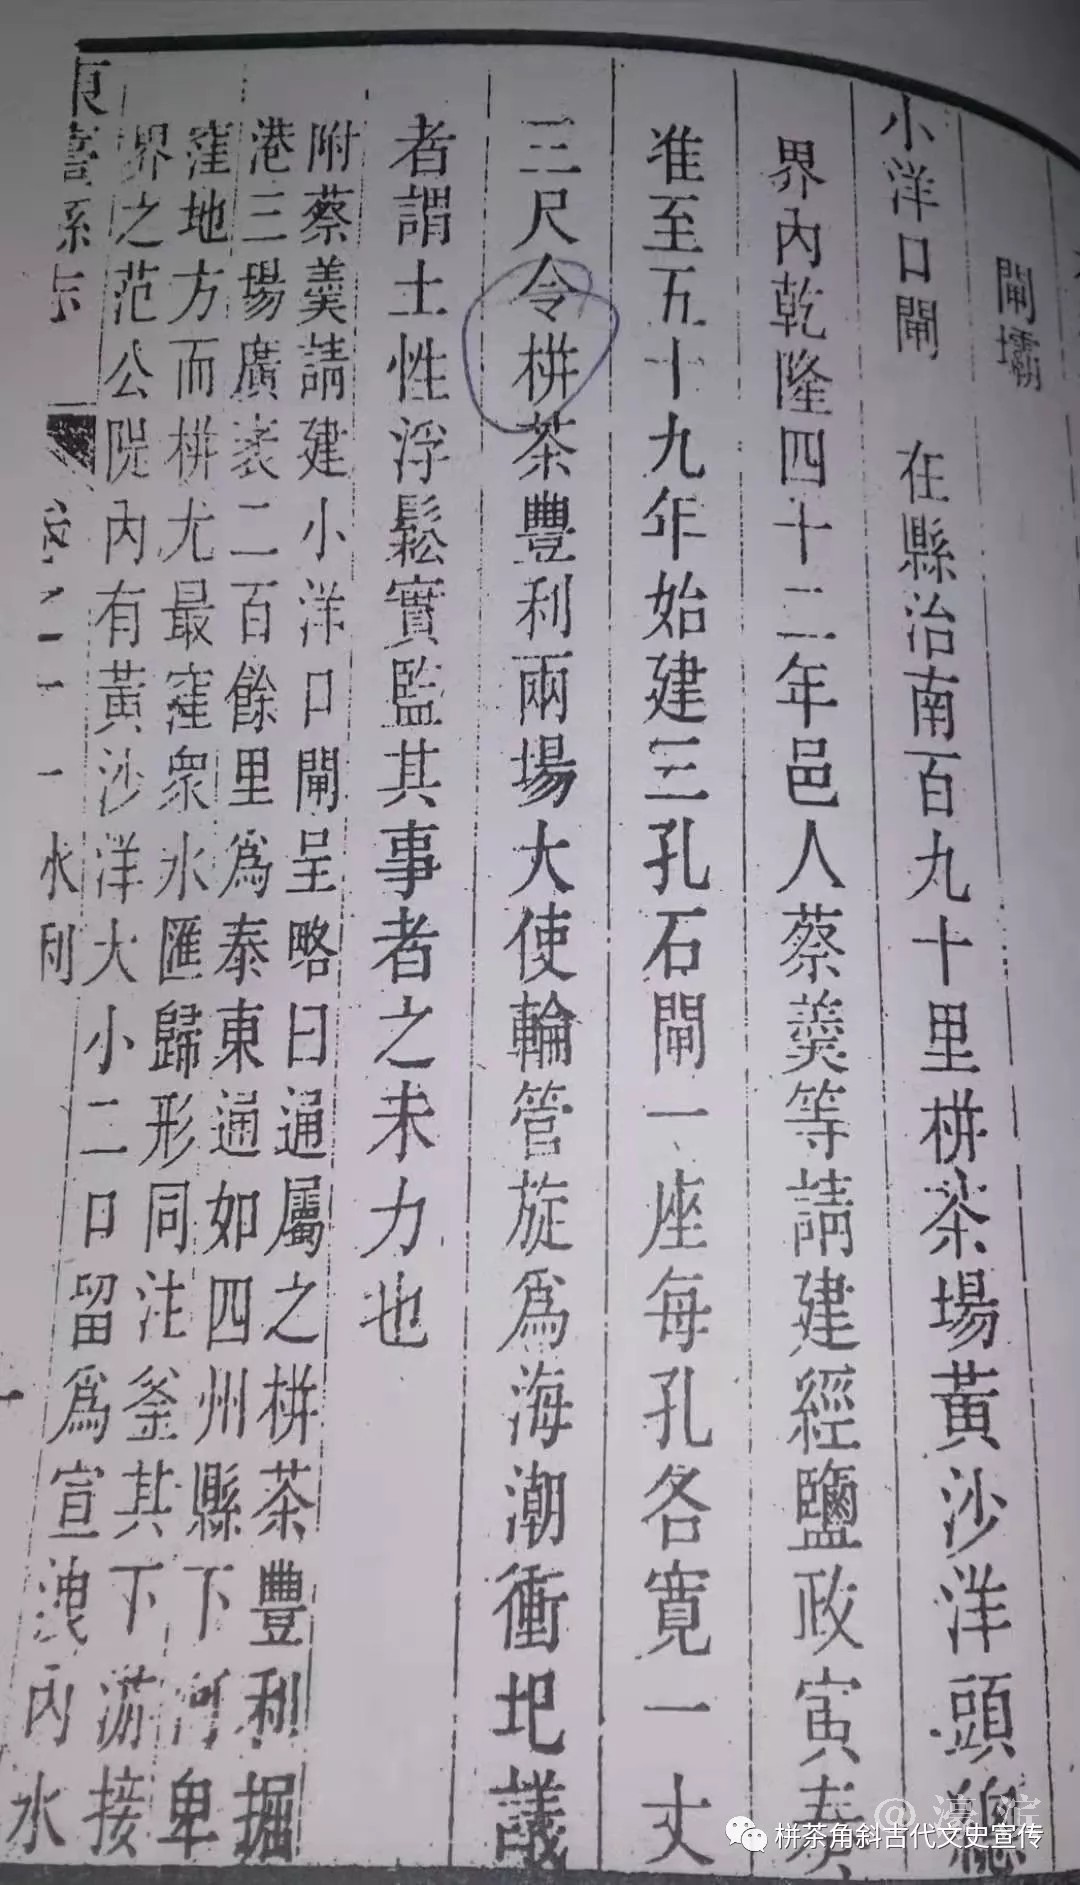 閘壩
小洋口閘 在縣治南百九十里栟茶場黃沙洋頭總
界內乾隆四十二年邑人蔡羹等請建經鹽政寅奏
准至五十九年始建三孔石閘一座每孔各寬一丈
三尺令栟茶豐利兩場大使輪管旋爲海潮衝圮議
者謂土性浮鬆實監其事者之未力也
附蔡羹請建小洋口閘呈略曰通屬之栟茶豐利掘
港三場廣袤二百餘里爲泰東通如四州縣下河卑
窪地方而栟尤最窪衆水匯歸形同注釜其下游接
界之范公隄內有黃沙洋大小二口留爲宣洩內水
東臺縣志 卷之十一 水利
一
@濠滨
栟茶角斜古代文史宣传